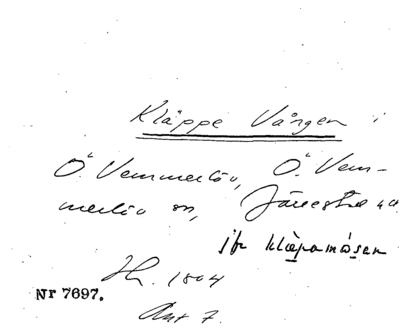 Kläppe Vången
Ö. Vemmerlöv, Ö. Vem-
merlöv sn, Järrestad
jfr kläpamosen
1804
Nr 7697.
Akt 7.